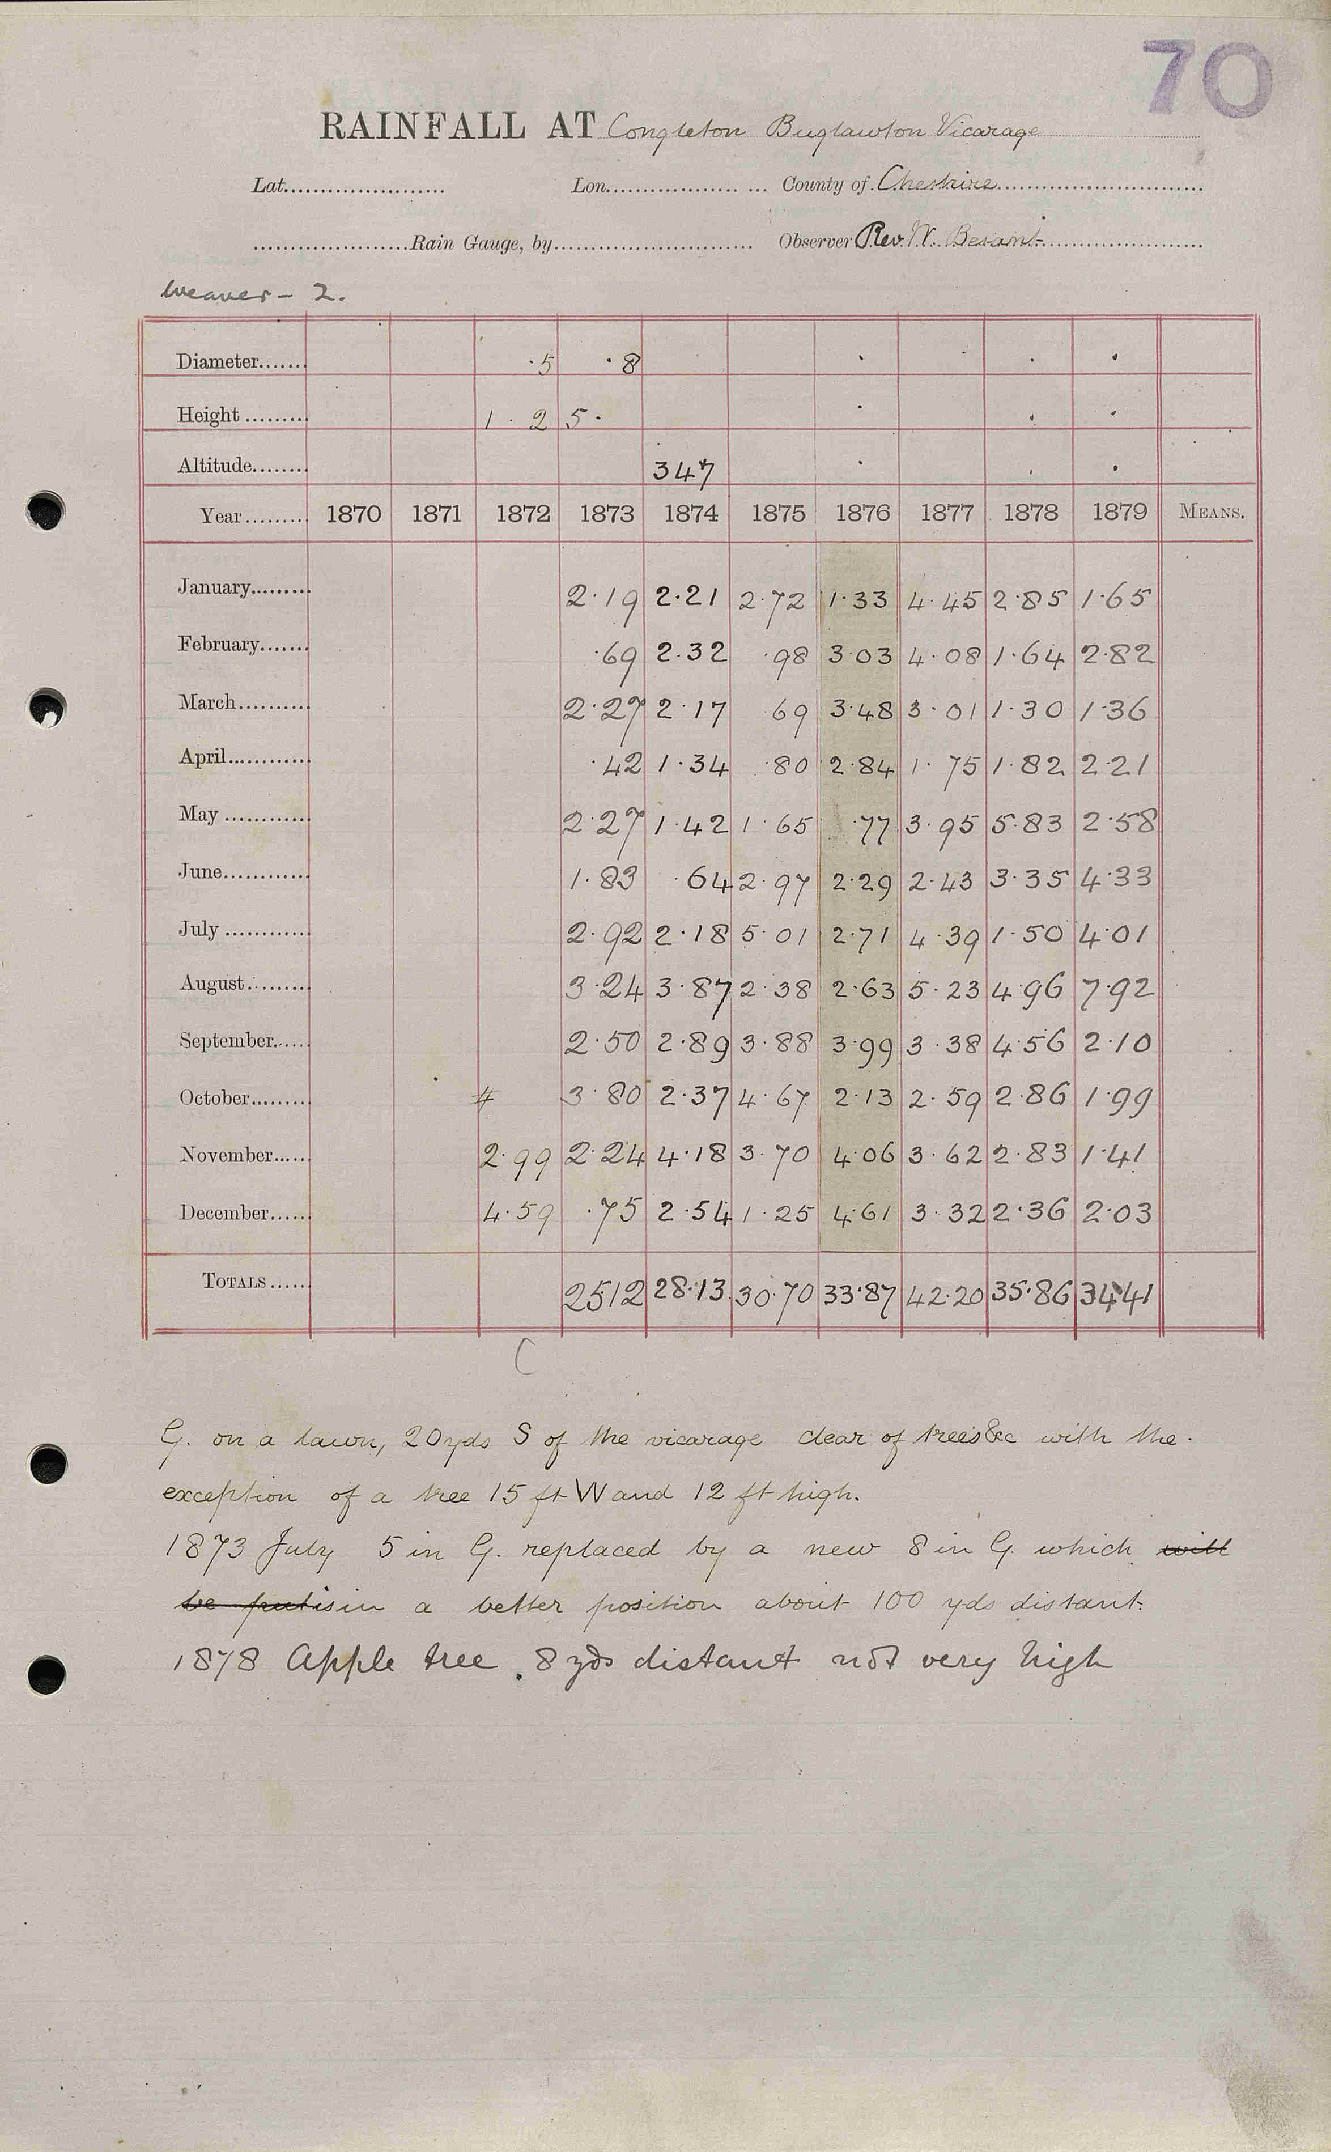 70
RAINFALL AT Congleton Buglawton Vicarage
Lat. Lon. County of Cheshire
Rain Gauge, by Observer Rev. W. Besant
Weaver - 2.
Diameter ·5 ·8
Height 1 · 2 5 ·
Altitude 347
Year 1870 1871 1872 1873 1874 1875 1876 1877 1878 1879 MEANS.
January 2·19 2·21 2·72 1·33 4·45 2·85 1·65
February ·69 2·32 ·98 3·03 4·08 1·64 2·82
March 2·27 2·17 69 3·48 3·01 1·30 1·36
April ·42 1·34 ·80 2·84 1·75 1·82 2·21
May 2·27 1·42 1·65 ·77 3·95 5·83 2·58
June 1·83 ·64 2·97 2·29 2·43 3·35 4·33
July 2·92 2·18 5·01 2·71 4·39 1·50 4·01
August 3·24 3·87 2·38 2·63 5·23 4·96 7·92
September 2·50 2·89 3·88 3·99 3·38 4·56 2·10
October 3·80 2·37 4·67 2·13 2·59 2·86 1·99
November 2·99 2·24 4·18 3·70 4·06 3·62 2·83 1·41
December 4·59 ·75 2·54 1·25 4·61 3·32 2·36 2·03
TOTALS 2512 28·13 30·70 33·87 42·20 35·86 34·41
C
G. on a lawn, 20yds S of the vicarage clear of trees &c with the
exception of a tree 15 ft W and 12 ft high.
1873 July 5 in G. replaced by a new 8 in G. which will
be put is in a better position about 100 yds distant.
1878 Apple tree 8 yds distant not very high